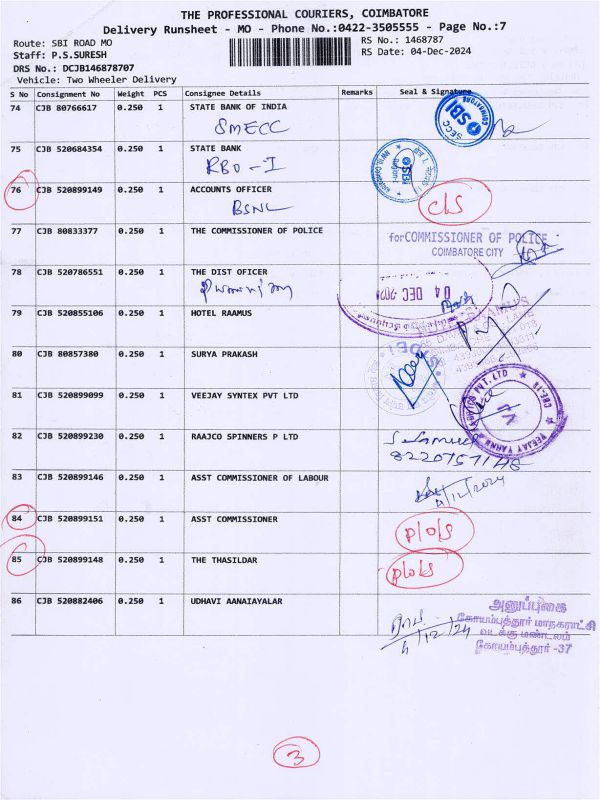 THE PROFESSIONAL COURIERS, COIMBATORE
Delivery Runsheet - MO - Phone No.:0422-3505555 - Page No.:7
Route: SBI ROAD MO
RS No.: 1468787
Staff: P.S.SURESH
RS Date: 04-Dec-2024
DRS No.: DCJB146878707
Vehicle: Two Wheeler Delivery
S No Consignment No Weight PCS Consignee Details Remarks Seal & Signature
74 CJB 80766617 0.250 1 STATE BANK OF INDIA
SMECC
SBI
SECC
COIMBATORE
75 CJB 520684354 0.250 1 STATE BANK
RBO - I
SBI
76 CJB 520899149 0.250 1 ACCOUNTS OFFICER
BSNL
c/s
77 CJB 80833377 0.250 1 THE COMMISSIONER OF POLICE
for COMMISSIONER OF POLICE
COIMBATORE CITY
78 CJB 520786551 0.250 1 THE DIST OFICER
04 DEC 202
79 CJB 520855106 0.250 1 HOTEL RAAMUS
80 CJB 80857380 0.250 1 SURYA PRAKASH
81 CJB 520899099 0.250 1 VEEJAY SYNTEX PVT LTD
82 CJB 520899230 0.250 1 RAAJCO SPINNERS P LTD
83 CJB 520899146 0.250 1 ASST COMMISSIONER OF LABOUR
4/12/2024
84 CJB 520899151 0.250 1 ASST COMMISSIONER
p/o/s
85 CJB 520899148 0.250 1 THE THASILDAR
p/o/s
86 CJB 520882406 0.250 1 UDHAVI AANAIAYALAR
4/12/24
அனுப்புகை
கோயம்புத்தூர் மாநகராட்சி
வடக்கு மண்டலம்
கோயம்புத்தூர் -37
3